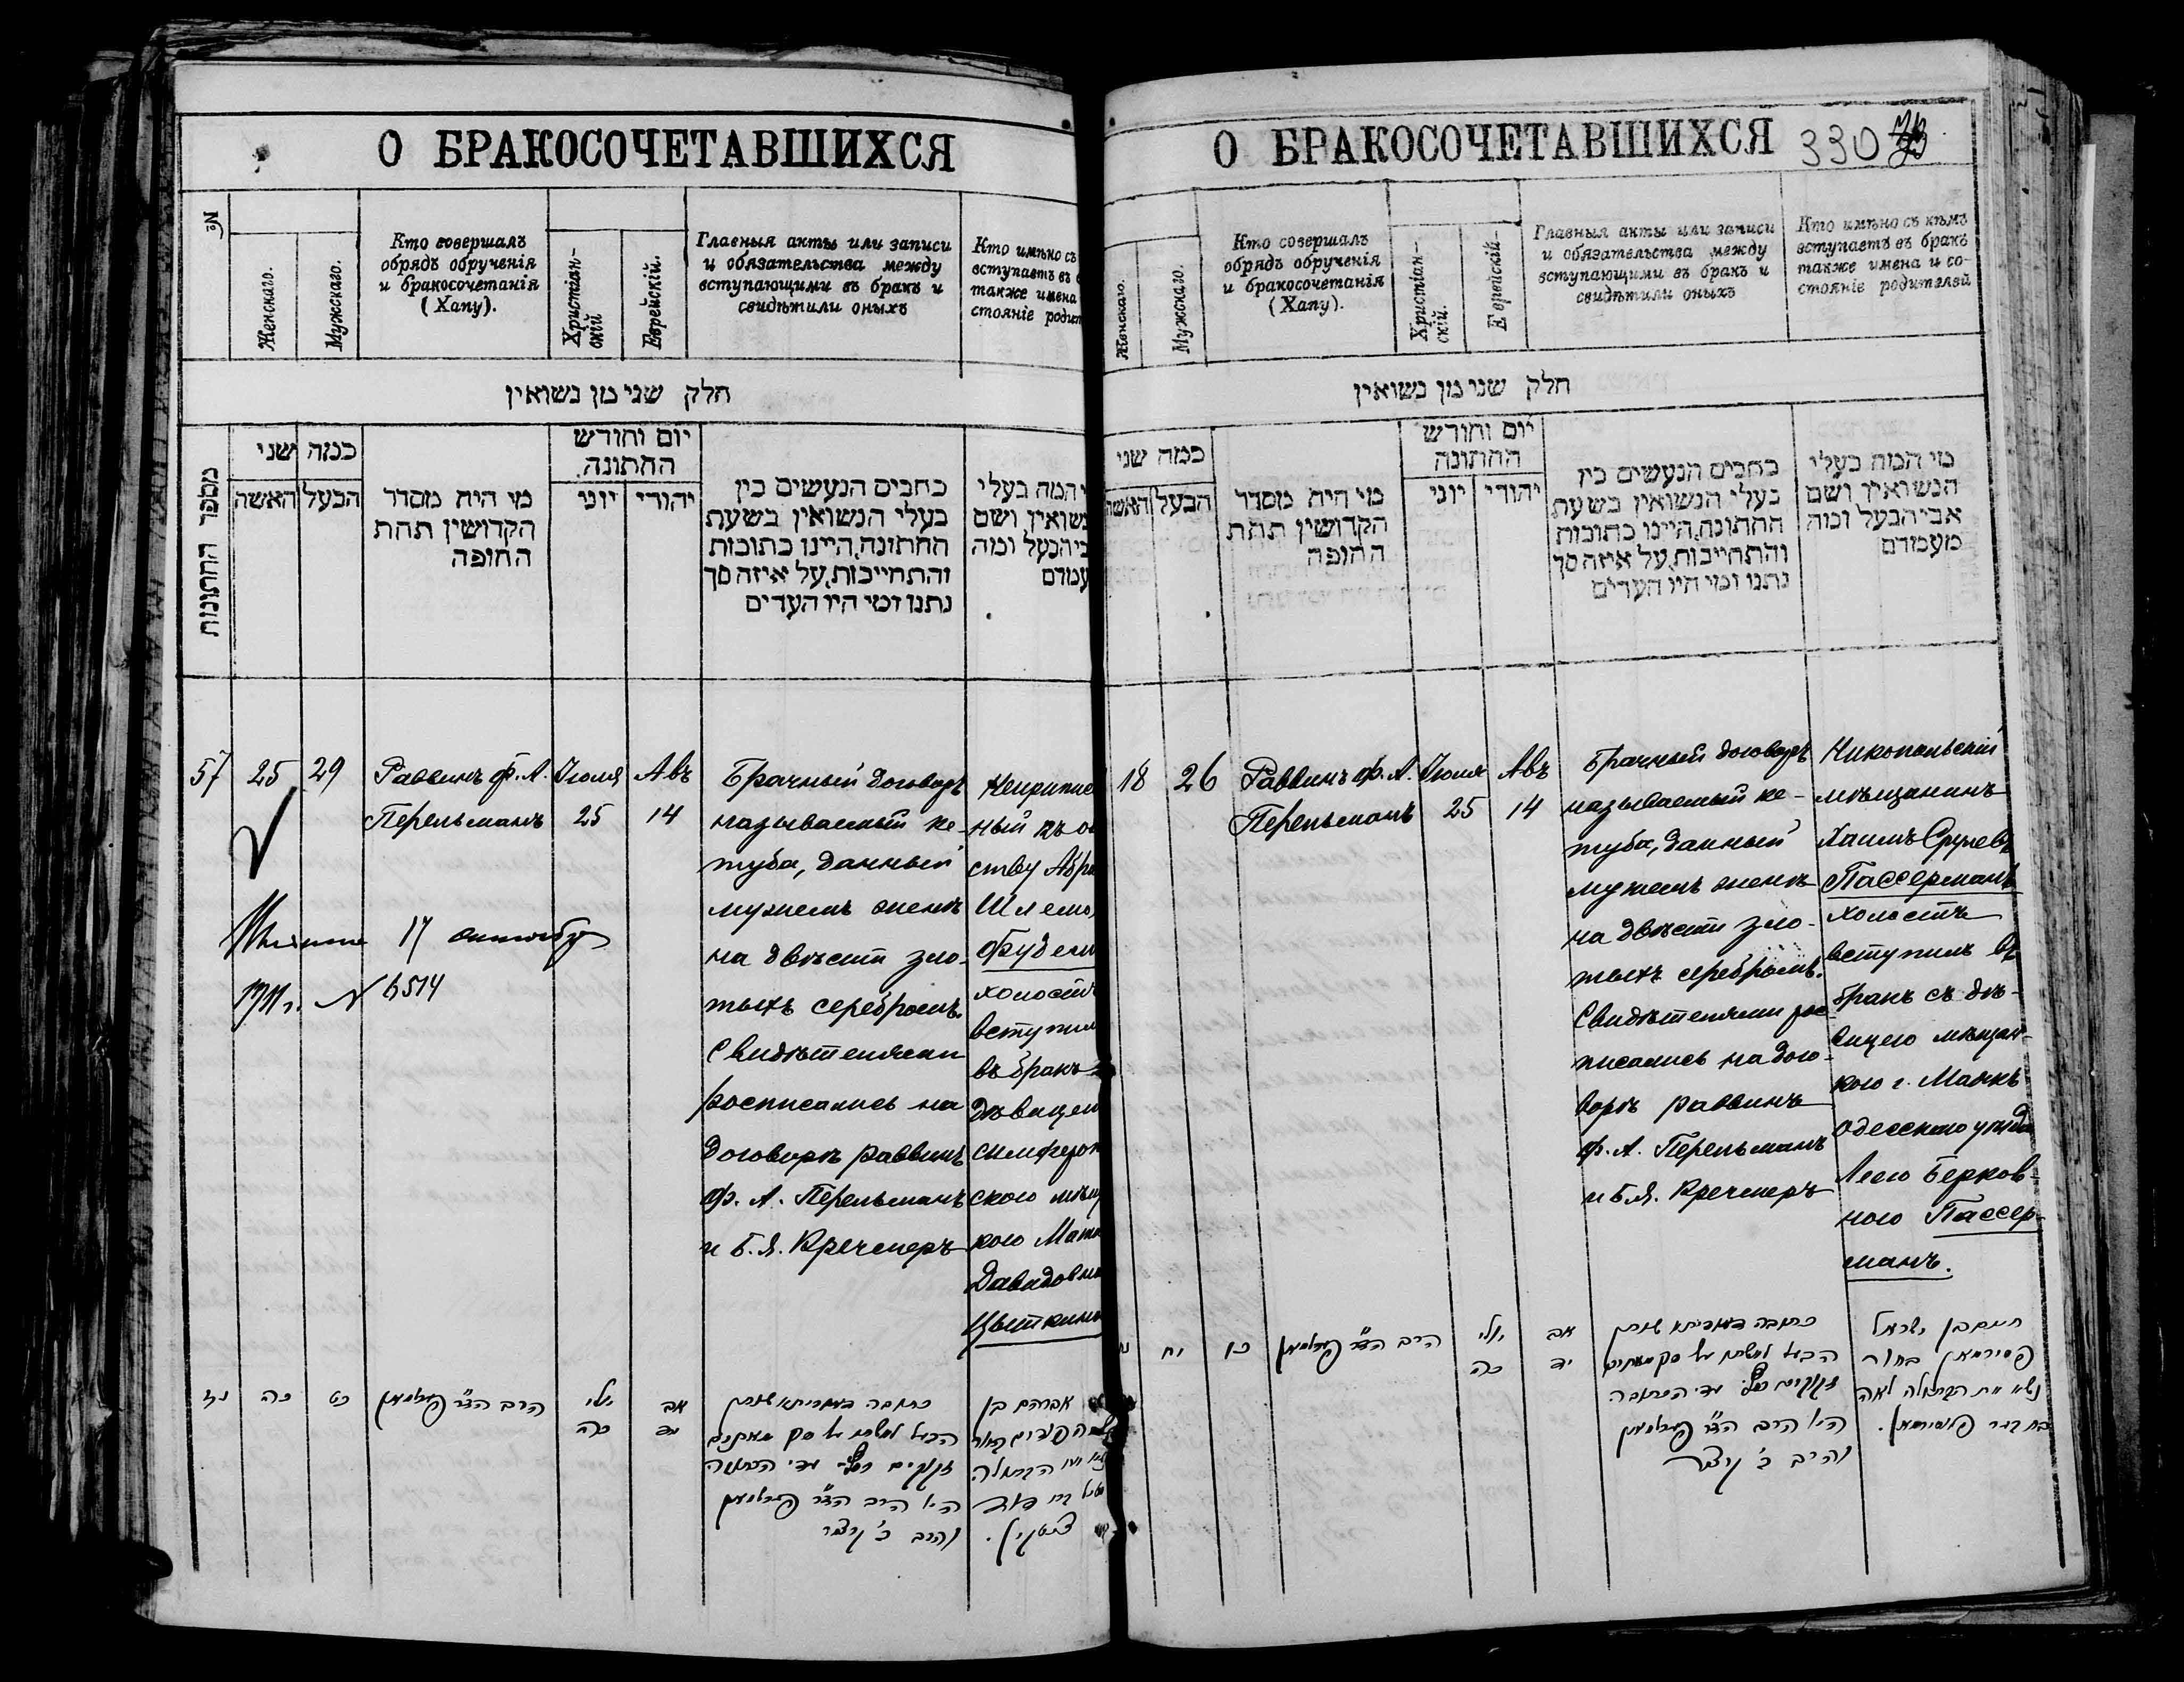 О БРАКОСОЧЕТАВШИХСЯ
№
Женскаго.
Мужскаго.
Кто совершалъ
обрядъ обрученія
и бракосочетанія
(Хапу).
Христіан-
скій
Еврейскій.
Главныя акты или записи
и обязательства между
вступающими въ бракъ и
свидѣтили оныхъ
Кто имѣно съ
вступаетъ въ
также имена
стояніе родит
חלק שני מן נשואין
מספר החתונות
כמה שני
האשה
הבעל
מי היה מסדר
הקדושין תחת
החופה
יום וחודש
החתונה
יוני
יהודי
כתבים הנעשים בין
בעלי הנשואין בשעת
החתונה, היינו כתובות
והתחייבות, על איזה סך
נתנו ומי היו העדים
המה בעלי
נשואין ושם
ביהבעל ומה
עמדם
57
25
29
Раввинъ Ф. А.
Перельманъ
Іюля
25
Авъ
14
Брачный договоръ
называемый ке-
туба, данный
мужемъ женѣ
на двѣсти зло-
тыхъ серебромъ.
Свидѣтелями
росписались на
договорѣ раввинъ
Ф. А. Перельманъ
и Б. Я. Кречмеръ
Неприписа
ный къ об
ству Абра
Шлемо
Фудели
холостъ
вступил
въ бракъ
дѣвицей
симфероп
скою мѣщ
кою
Давидовно
Цыткино
17 октября
1911 г. № 6514
נז
כה
כט
הרב הצ"ר פערלמאן
יולי
כה
אב
יד
כתובה דאורייתא שנתן
הבעל לאשתו על סך מאתים
זקוקים כסף. עדי הכתובה
היו הרב הצ"ר פערלמאן
והרב ב' קרצמר
אברהם בן
הבתולה
בת דוד
ציטקין.
О БРАКОСОЧЕТАВШИХСЯ 330
Женскаго.
Мужскаго.
Кто совершалъ
обрядъ обрученія
и бракосочетанія
(Хапу).
Христіан-
скій.
Еврейскій.
Главныя акты или записи
и обязательства между
вступающими въ бракъ и
свидѣтили оныхъ
Кто имѣно съ кѣмъ
вступаетъ въ бракъ
также имена и со-
стояніе родителей
חלק שני מן נשואין
כמה שני
האשה
הבעל
מי היה מסדר
הקדושין תחת
החופה
יום וחודש
החתונה
יוני
יהודי
כתבים הנעשים בין
בעלי הנשואין בשעת
החתונה, היינו כתובות
והתחייבות, על איזה סך
נתנו ומי היו העדים
מי המה בעלי
הנשואין ושם
אביהבעל ומה
מעמדם
18
26
Раввинъ Ф. А.
Перельманъ
Іюля
25
Авъ
14
Брачный договоръ
называемый ке-
туба, данный
мужемъ женѣ
на двѣсти зло-
тыхъ серебромъ.
Свидѣтелями рос-
писались на дого-
ворѣ раввинъ
Ф. А. Перельманъ
и Б. Я. Кречмеръ
Никопольскій
мѣщанинъ
Хаимъ Срулевъ
Пассерманъ
холостъ
вступилъ въ
бракъ съ дѣ-
вицею мѣщан-
кою г. Маякъ
Одесскаго уѣзда
Леею Берков-
ною Пассер-
манъ.
יח
כו
הרב הצ"ר פערלמאן
יולי
כה
אב
יד
כתובה דאורייתא שנתן
הבעל לאשתו על סך מאתים
זקוקים כסף. עדי הכתובה
היו הרב הצ"ר פערלמאן
והרב ב' קרצמר
חיים בן ישראל
פסירמאן בחור
נשוי עם הבתולה לאה